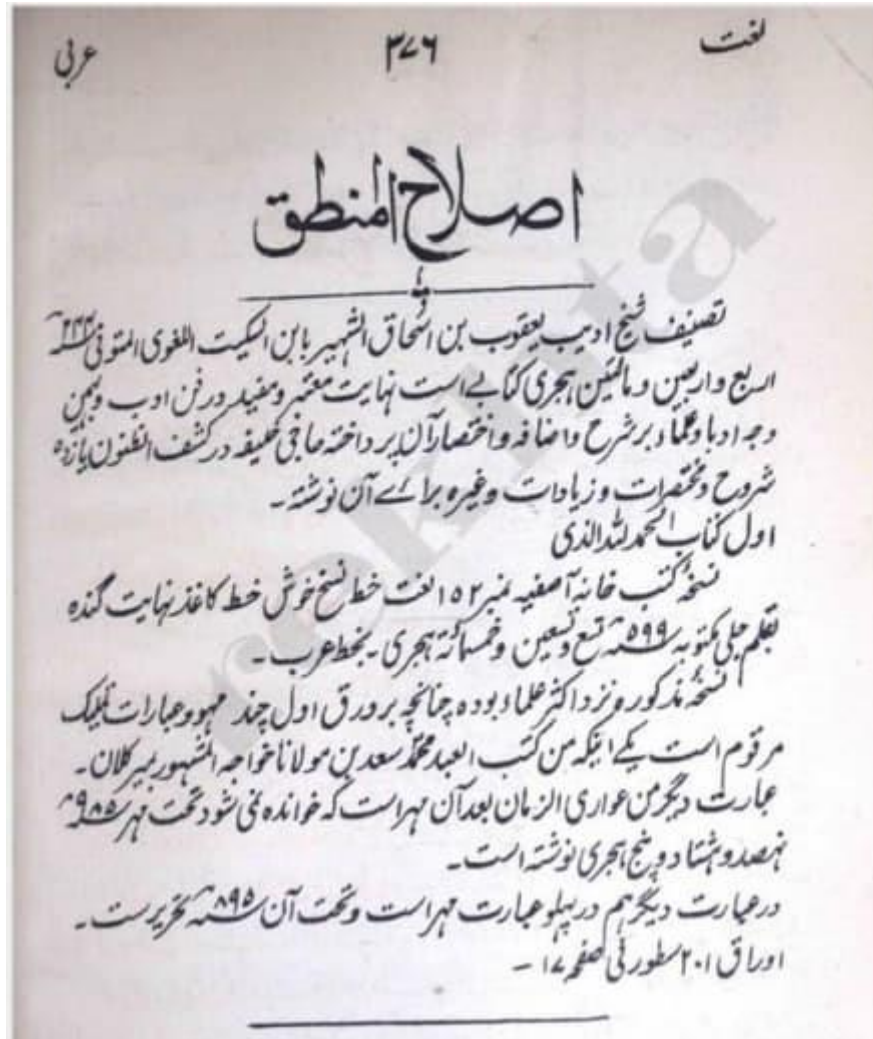 لغت
۳۷۶
عربی
اصلاح المنطق
تصنیف شیخ ادیب یعقوب بن اسحاق الشهیر بابن السکیت اللغوی المتوفی سنہ ۲۴۴
اربع واربعین ومائتین ہجری کتابے است نہایت معتبر و مفید در فن ادب وہمین
وجہ ادبا وعلماء بر شرح واضافہ واختصار آن پرداختہ حاجی خلیفہ در کشف الظنون یازدہ
شروح ومختصرات وزیادات وغیرہ براے آن نوشتہ ۔
اول کتاب الحمد للہ الذی
نسخۂ کتب خانہ آصفیہ نمبر ۱۵۲ لغت خط نسخ خوش خط کاغذ نہایت گندہ
بقلم جلی مکتوبہ سنہ ۵۹۹ تسع وتسعین وخمسمائۃ ہجری ۔ بخط عرب ۔
نسخۂ مذکورہ نزد اکثر علماء بودہ چنانچہ بر ورق اول چند مہر وعبارات تملیک
مرقوم است یکے اینکہ من کتب العبد محمد سعد بن مولانا خواجہ المشہور بمیر کلان ۔
عبارت دیگر من عواری الزمان بعد آن مہر است کہ خواندہ نمی شود تحت مہر سنہ ۹۸۵
نہصد وہشتاد وپنج ہجری نوشتہ است ۔
در عبارت دیگر ہم در پہلو عبارت مہر است وتحت آن سنہ ۸۹۵ تحریرست ۔
اوراق ۲۰۱ سطور فی صفحہ ۱۷ ۔
rekhta